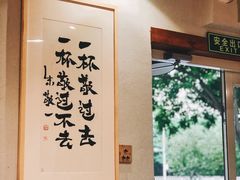 一杯敬过去
一杯敬过不去
朱敬一
安全出口
EXIT